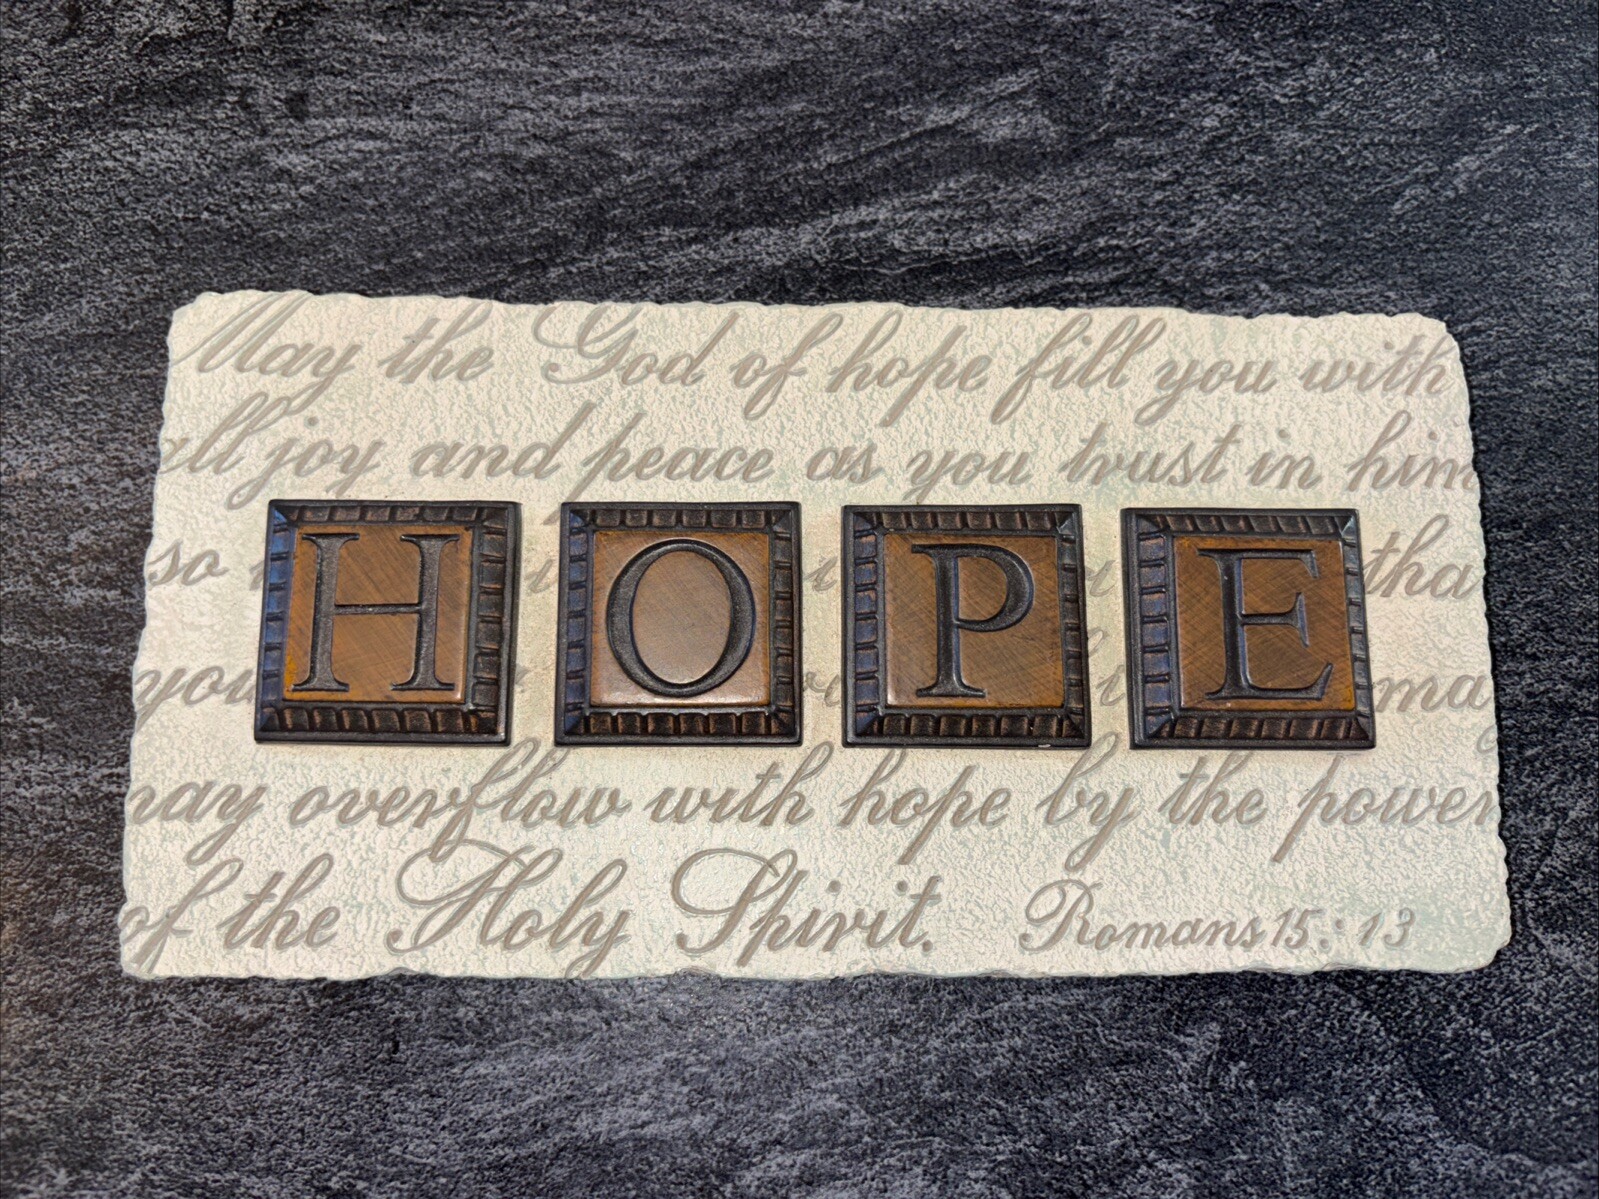 May the God of hope fill you with
all joy and peace as you trust in him
so tha
HOPE
you ma
may overflow with hope by the power
of the Holy Spirit. Romans 15:13